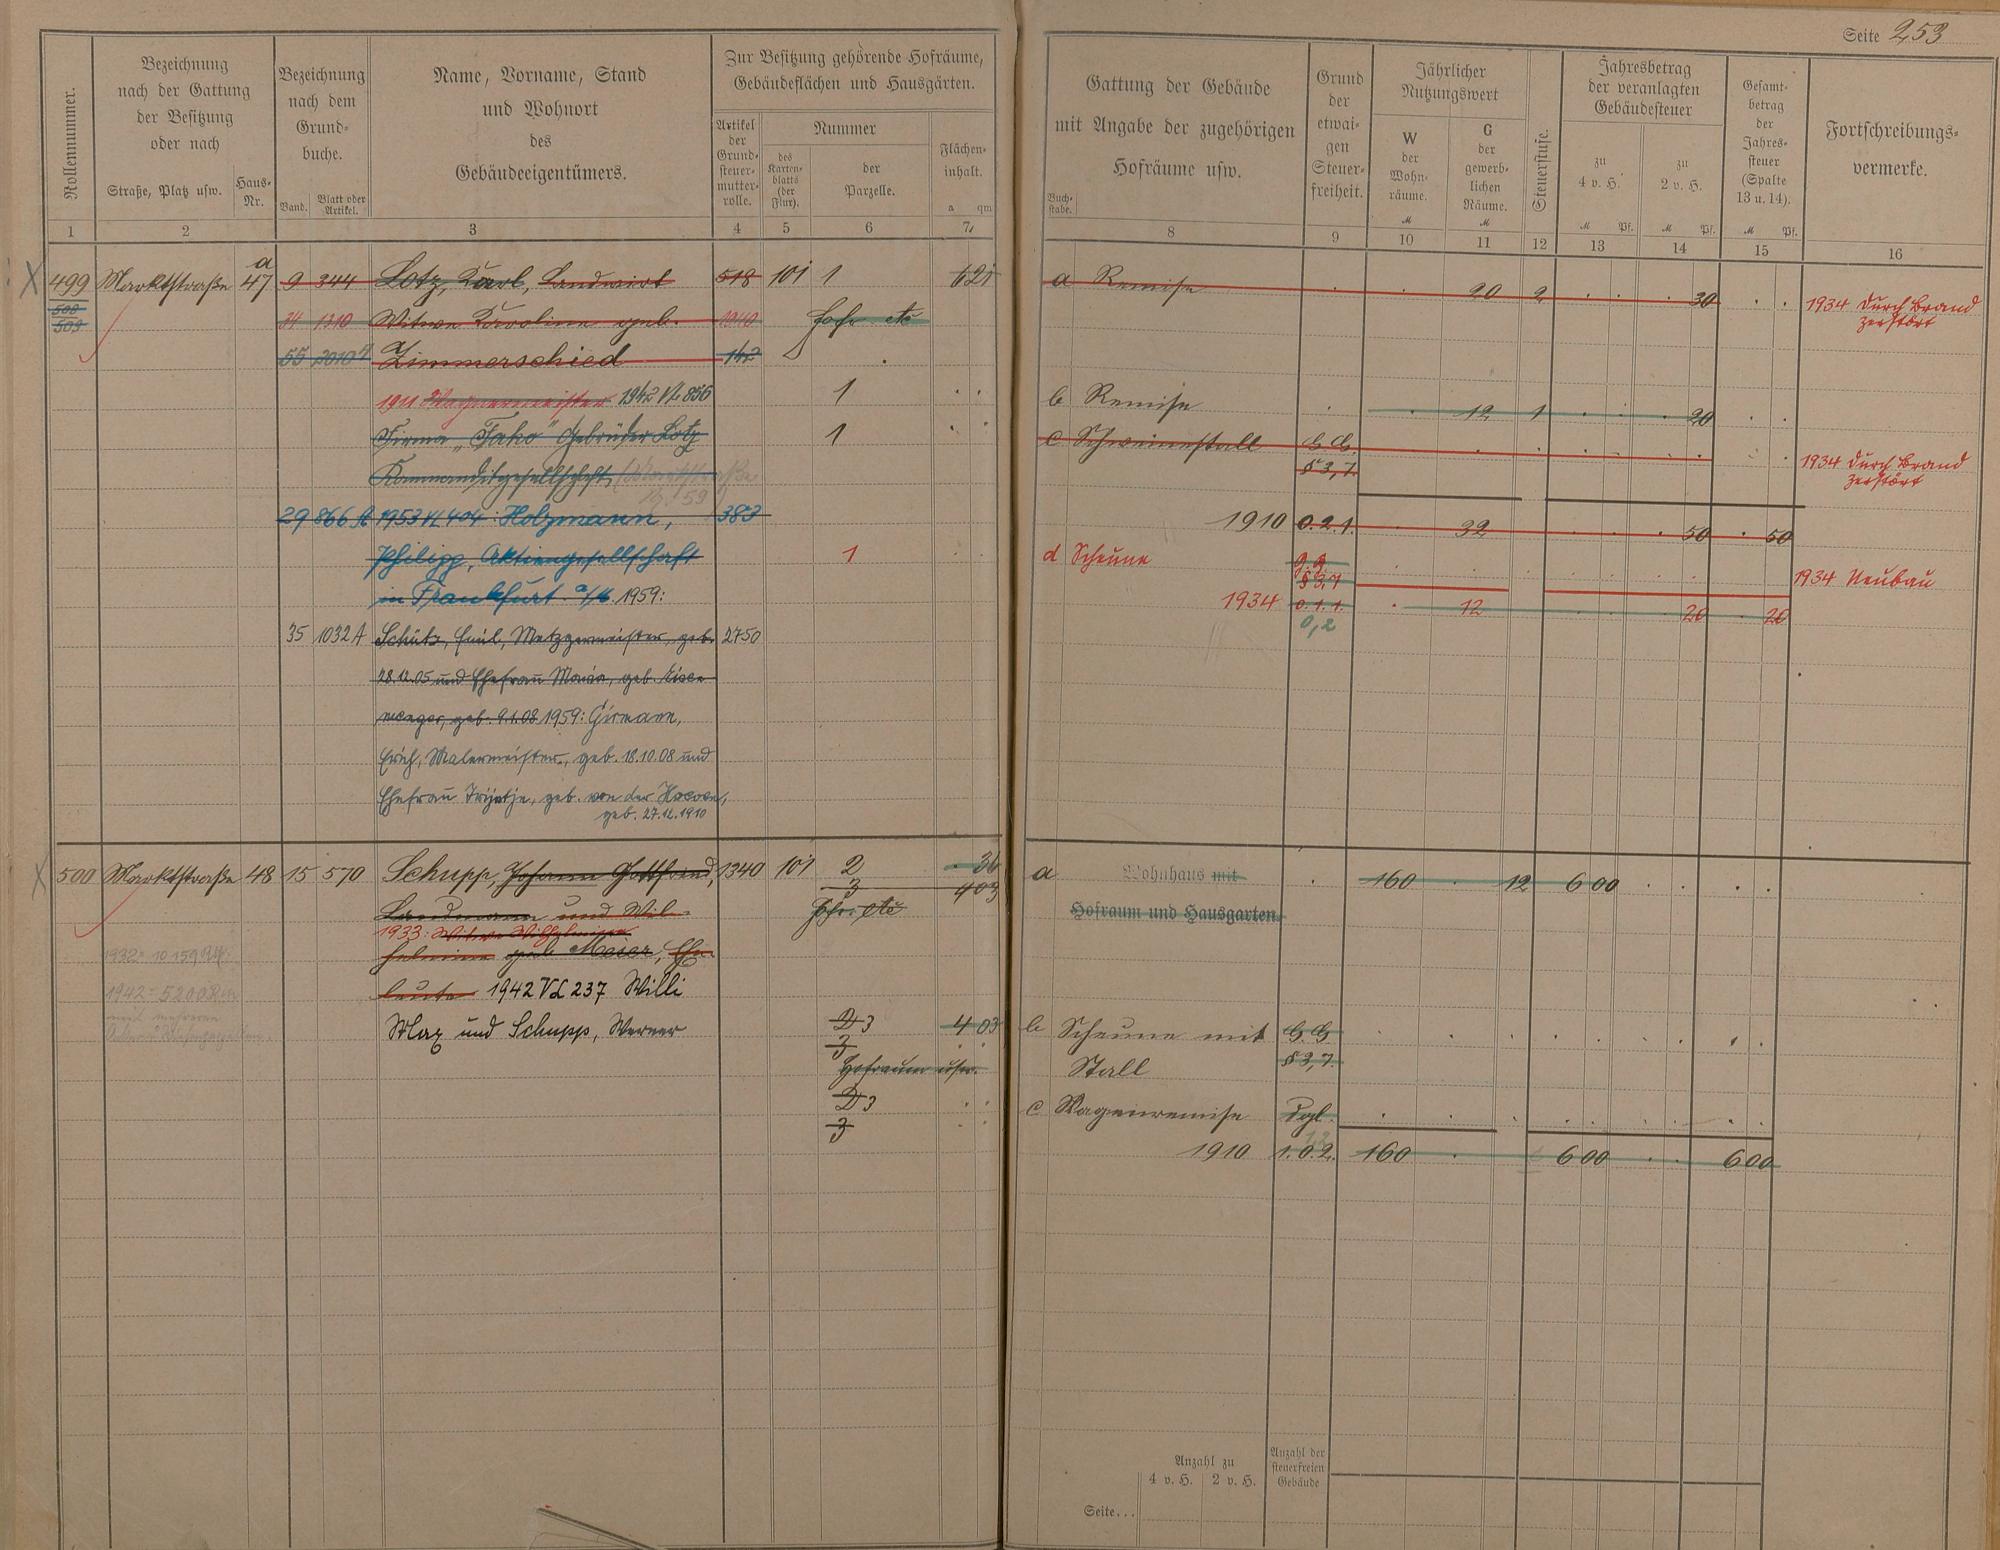 Seite 253
Rollennummer.
Bezeichnung
nach der Gattung
der Besitzung
oder nach
Straße, Platz usw.
Haus-
Nr.
Bezeichnung
nach dem
Grund-
buche.
Band.
Blatt oder
Artikel.
Name, Vorname, Stand
und Wohnort
des
Gebäudeeigentümers.
Zur Besitzung gehörende Hofräume,
Gebäudeflächen und Hausgärten.
Artikel
der
Grund-
steuer-
mutter-
rolle.
Nummer
des
Karten-
blatts
(der
Flur).
der
Parzelle.
Flächen-
inhalt.
a qm
1 2 3 4 5 6 7
499 Marktstraße 47 a 9 344 Lotz, Karl, Landwirt 518 101 1 621
500
509
34 1310 Witwe Karoline geb. 1910 Hofr. etc
55 2010 A Zimmerschied 142
1911 Wagnermeister 1942 VL 856 1
Firma „Fako" Gebrüder Lotz 1
Kommanditgesellschaft, (Marktstraße
59
29 866 A 1953 VL 404: Holzmann, 383
Philipp, Aktiengesellschaft 1
in Frankfurt a/M. 1959:
35 1032 A Schütz, Emil, Metzgermeister, geb. 2750
28.12.05 und Ehefrau Maria, geb.
geb. 9.1.08. 1959: Girmann,
Erich, Malermeister, geb. 18.10.08 und
Ehefrau Trijntje, geb. von der
geb. 27.12.1910
500 Marktstraße 48 15 570 Schupp, Johann Gottfried, 1340 101 2 36
3 403
Landmann und Wil- Hofr. etc
1933: Witwe Wilhelmine
helmine geb. Meier, Ehe-
leute 1942 VL 237 Willi
Max und Schupp, Werner 2 3 403
3
Hofraum usw.
2 3
3
1932: 10 159
1942 = 5200 Rm
Gattung der Gebäude
mit Angabe der zugehörigen
Hofräume usw.
Buch-
stabe.
Grund
der
etwai-
gen
Steuer-
freiheit.
Jährlicher
Nutzungswert
W
der
Wohn-
räume.
M
G
der
gewerb-
lichen
Räume.
M
Steuerstufe.
Jahresbetrag
der veranlagten
Gebäudesteuer
zu
4 v. H.
M Pf.
zu
2 v. H.
M Pf.
Gesamt-
betrag
der
Jahres-
steuer
(Spalte
13 u. 14).
M Pf.
Fortschreibungs-
vermerke.
8 9 10 11 12 13 14 15 16
a Remise 20 2 30 1934 durch Brand
zerstört
b Remise 12 1 20
c Schweinestall G. G. 1934 durch Brand
§ 3,7. zerstört
1910 0.2.1. 32 50 50
d Scheune G. G. 1934 Neubau
§ 3,7
1934 0.1.1. 12 20 20
0,2
a Wohnhaus mit 160 12 6 00
Hofraum und Hausgarten.
b Scheune mit G. G.
Stall § 3,7.
c Wagenremise dgl.
1,2
1910 1.0.2. 160 6 00 6 00
Anzahl zu
4 v. H. 2 v. H.
Anzahl der
steuerfreien
Gebäude
Seite...